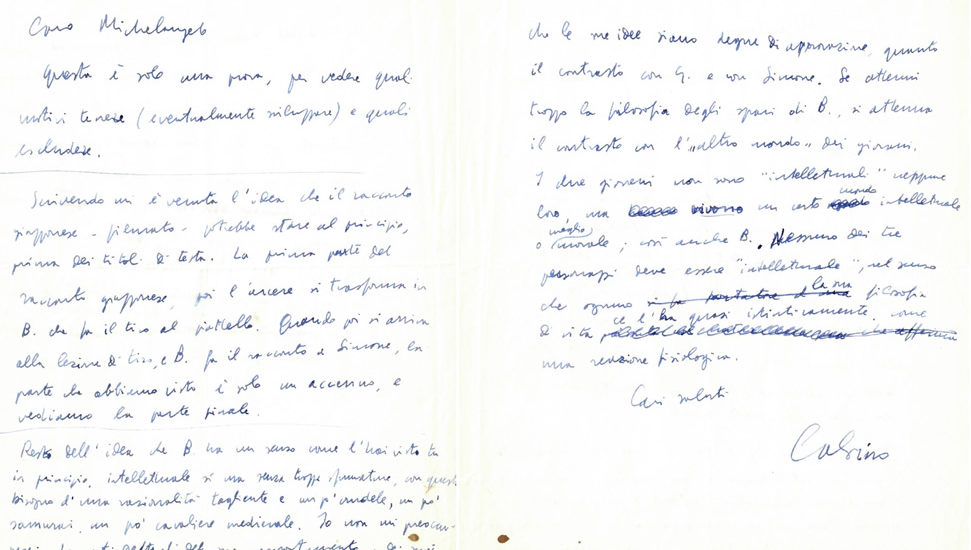 Caro Michelangelo
Questa è solo una prova, per vedere quali
motivi tenere (eventualmente sviluppare) e quali
escludere.
Scrivendo mi è venuta l'idea che il racconto
giapponese - filmato - potrebbe stare al principio,
prima dei titoli di testa. La prima parte del
racconto giapponese, poi l'arciere si trasforma in
B. che fa il tiro al piattello. Quando poi si arriva
alla lezione di tiro, e B. fa il racconto a Simone, la
parte che abbiamo visto è solo un accenno, e
vediamo la parte finale.
Resto dell'idea che B. ha un senso come l'hai visto tu
in principio, intellettuale sì ma senza troppe sfumature, con questo
bisogno d'una razionalità tagliente e un po' crudele, un po'
samurai, un po' cavaliere medievale. Io non mi preoccu-
che le sue idee siano degne di approvazione, quanto
il contrasto con G. e con Simone. Se attenui
troppo la filosofia degli spari di B., si attenua
il contrasto con l'"altro mondo" dei giovani.
I due giovani non sono "intellettuali" neppure
loro, ma vivono un certo mondo intellettuale
o meglio morale; così anche B. Nessuno dei tre
personaggi deve essere "intellettuale", nel senso
che ognuno si fa portatore d'una la sua filosofia
di vita ce l'ha quasi istintivamente, come che afferma
una reazione fisiologica.
Cari saluti
Calvino